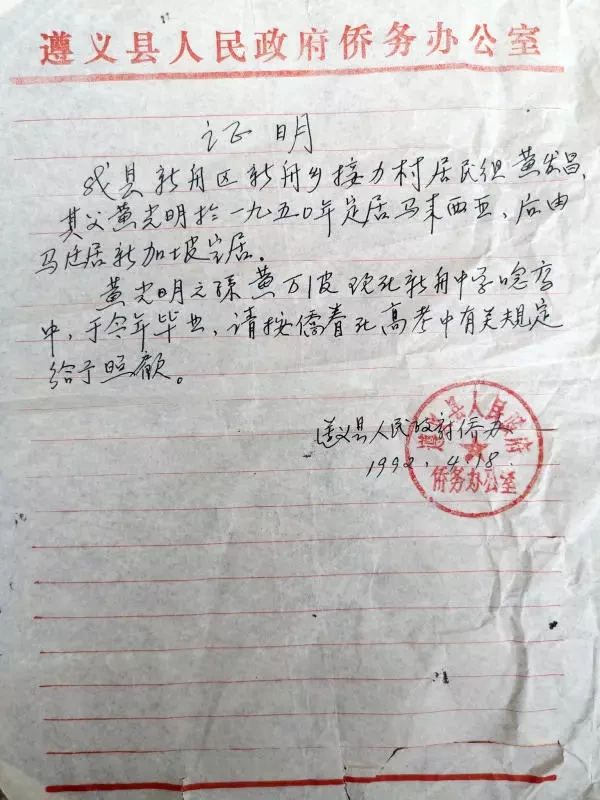 遵义县人民政府侨务办公室
证明
我县新舟区新舟乡接力村居民组黄发昌,
其父黄光明於一九五〇年定居马来西亚、后由
马迁居新加坡定居.
黄光明之孫黄万波现在新舟中学唸高
中,于今年毕业,请按僑眷在高考中有关规定
给予照顧。
遵义县人民政府侨办
1992.4.18.
遵义县人民政府
侨务办公室